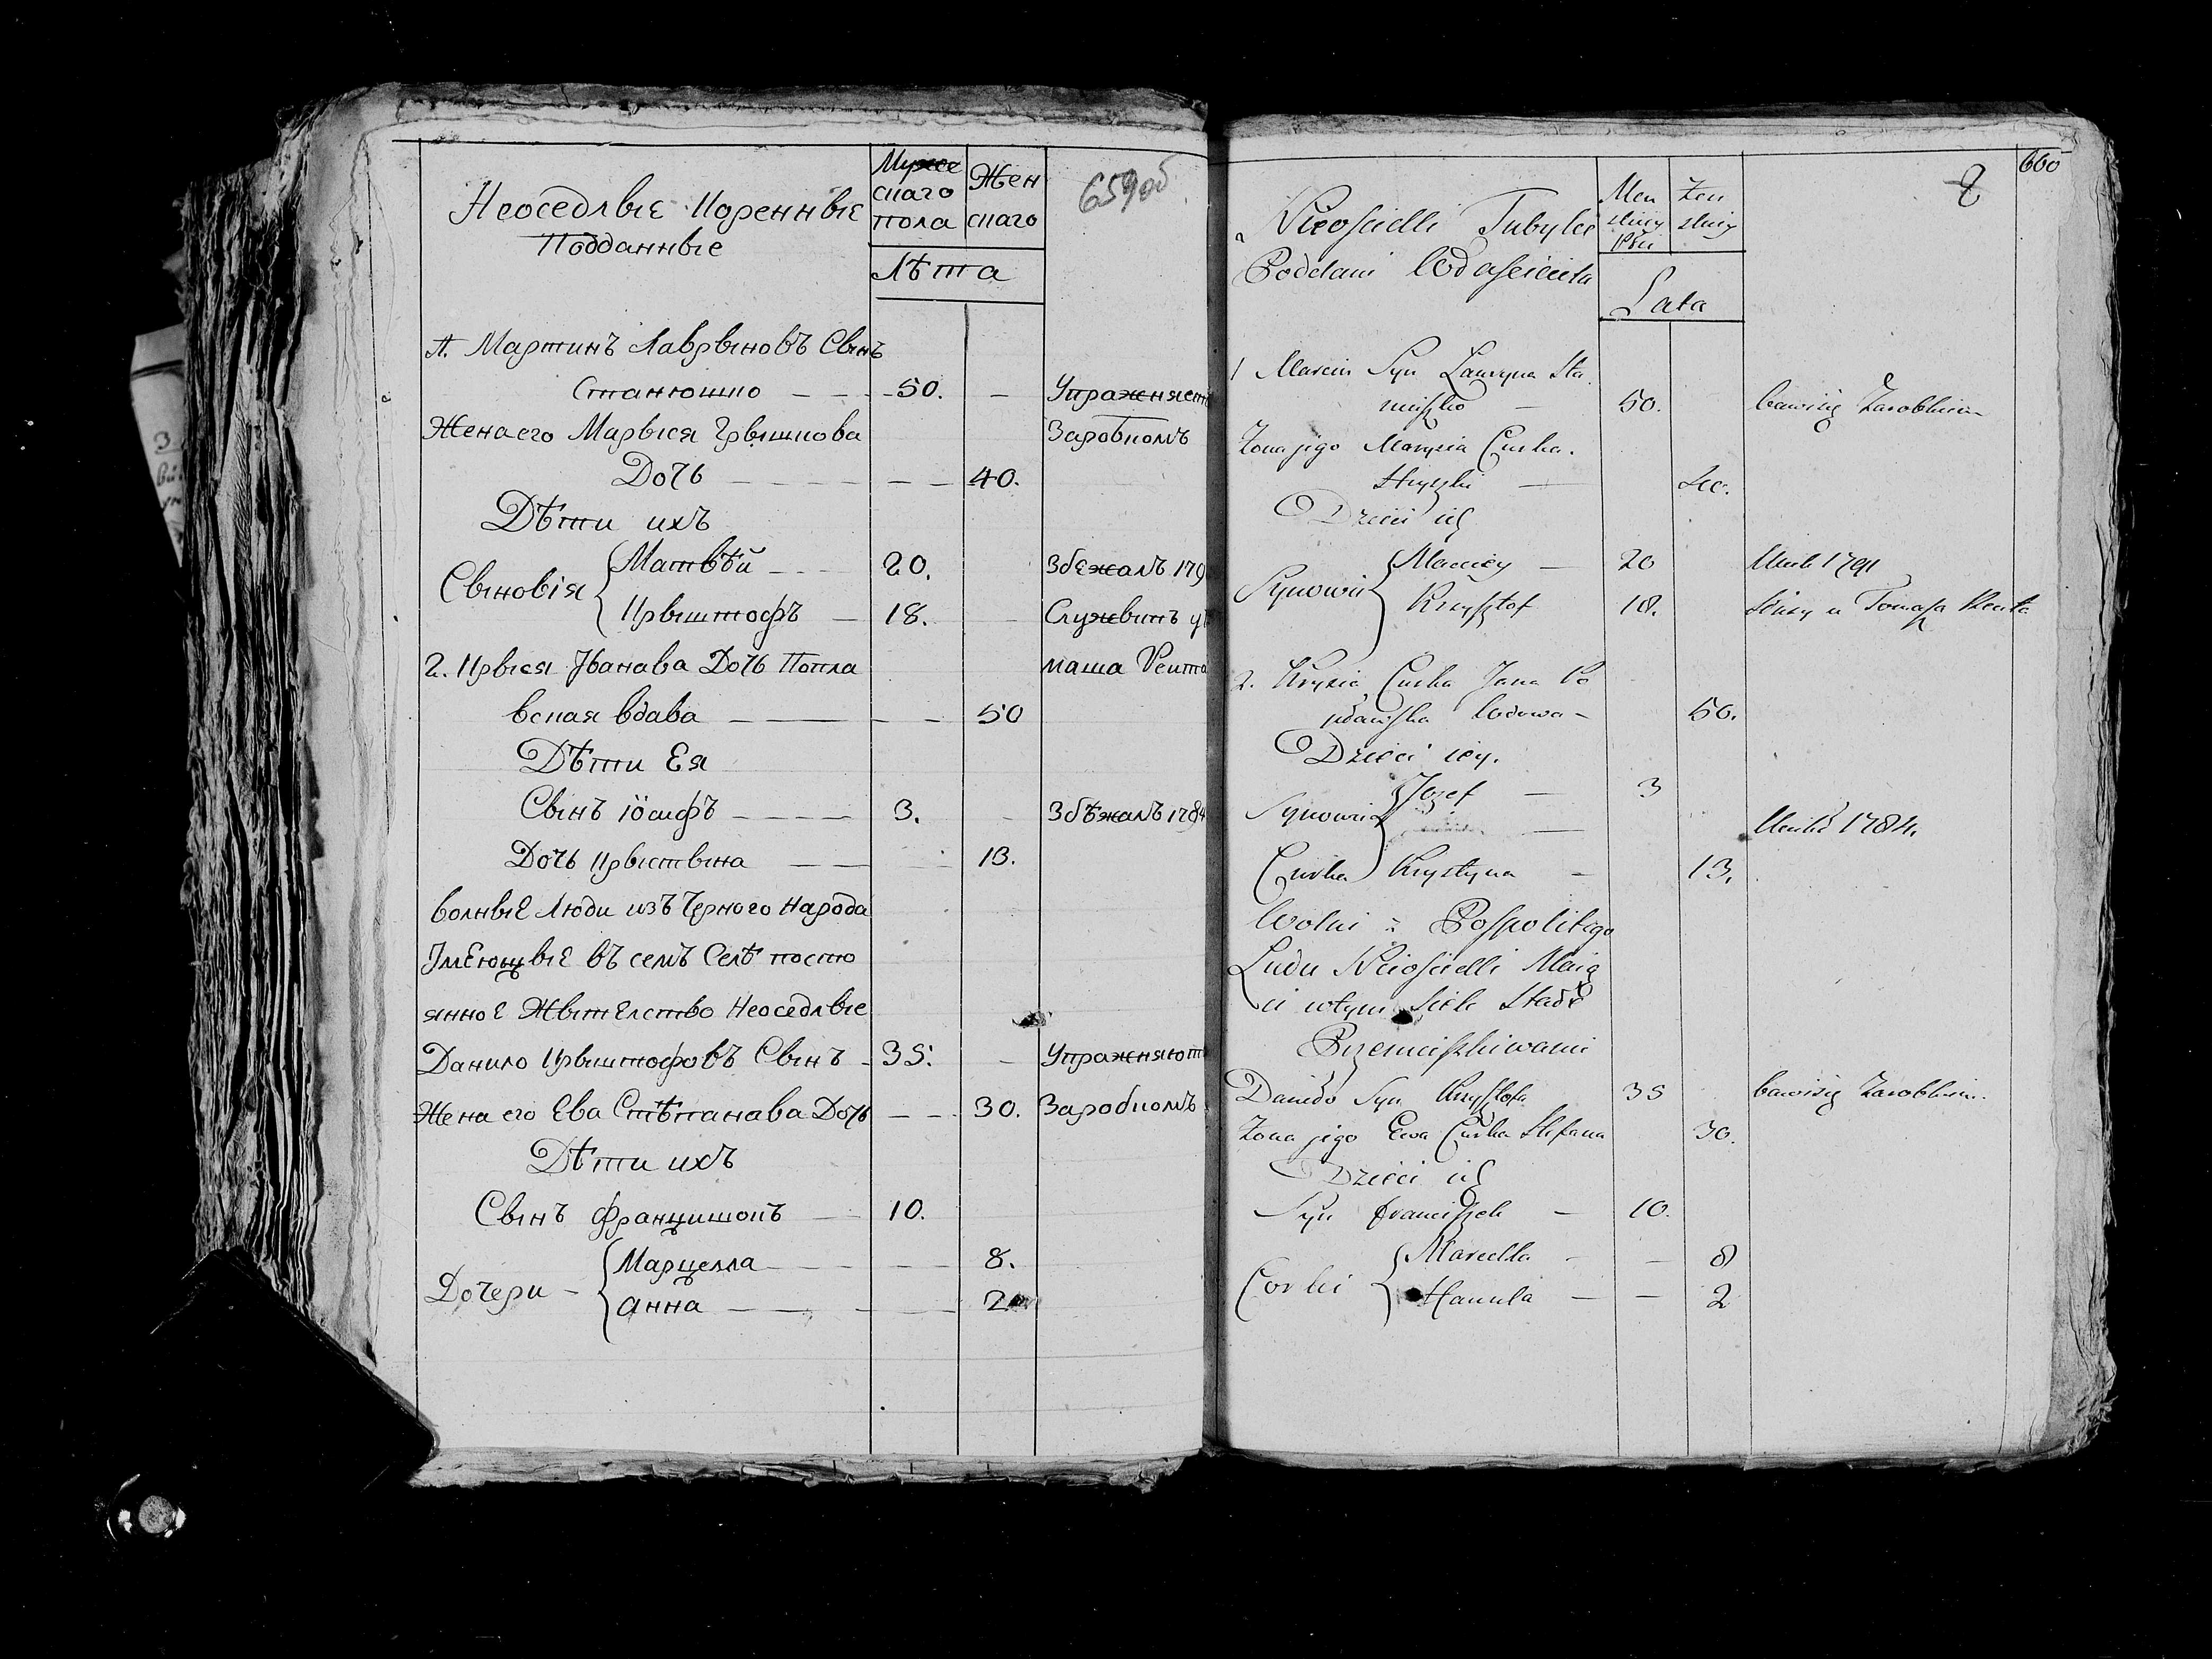 Неоседлыɛ Коренныɛ
Подданныɛ
Мужескаго пола
Женскаго
Лѣта
659об
1. Мартинъ Лаврыновъ Сынъ
Станюшко — 50. — Упражняет
Жена его Марыся Грышкова Заробкомъ
Дочь — 40.
Дѣти ихъ
Сыновія
Матвѣй — 20. Збежалъ 179
Крыштофъ — 18. Служытъ у
2. Крыся Іванава Дочь Попла маша Рента
вская вдава — 50
Дѣти Ея
Сынъ іосифъ — 3. Збѣжалъ 1784
Дочь Крыстына — 13.
волныɛ Люди изъ Черного народа
Імɛющыɛ въ семъ Селѣ постоянноɛ Жытɛлство Неоседлыɛ
Данило Крыштофовъ Сынъ — 35. — Упражняют
Жена его Ева Стѣпанава Дочь — 30. Заробкомъ
Дѣти ихъ
Сынъ францишокъ — 10.
Дочери
Марцелла — 8.
анна — 2
Nieosiedli Tubylcy
Poddani Włascicila
Men skiey Płci
Żen skiey
Lata
8
660
1 Marcin Syn Lawryna Sta
niszko — 50. bawisię Zarobkiem
Żona jego Marysia Curka
Hryszki — 40.
Dzieci ich
Synowie
Maciey — 20 Uciek 1791
Krysztof 18. służy u Tomasza Renta
2. Krysia Curka Jana Po
pławska Wdowa — 50.
Dzieci iey.
Synowie
Jozef — 3
Uciekł 1784.
Curka Krystyna — 13.
Wolni z Pospolitego
Ludu Nieosiedli Maią
ci wtym Siele Stałe
Przemieszkiwanie
Daniło Syn Krysztofa 35 bawisię Zarobkiem
Żona jego Ewa Curka Stefana 30.
Dzieci ich
Syn franciszek — 10.
Corki
Marcella — 8
Hanula — 2